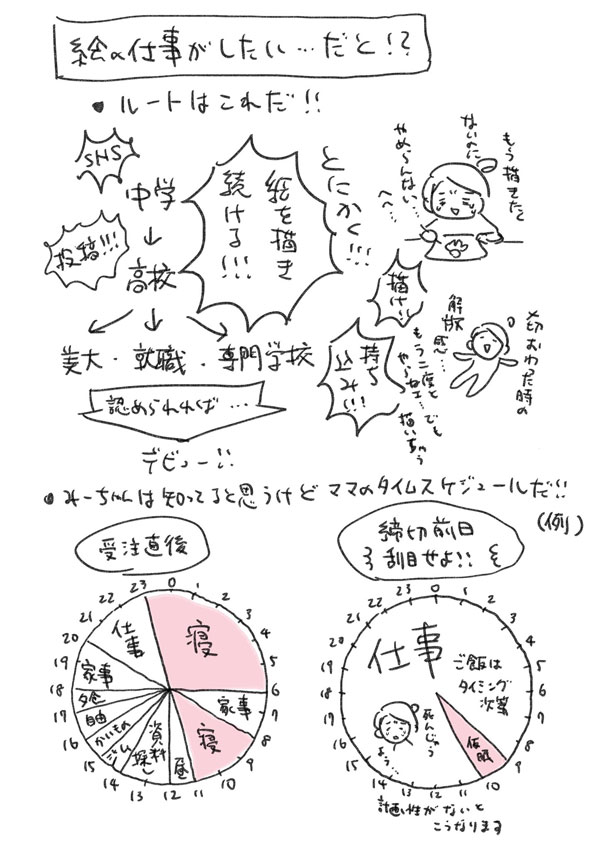 絵の仕事がしたい…だと!?
・ルートはこれだ!!
SNS
投稿!!!
中学
↓
高校
↓
美大・就職・専門学校
とにかく!!!
絵を描き
続ける!!!
描け!!
持ち
込み!!!
もう描きたく
ないのに
やめらんない
へへ…
〆切おわった時の
解放
感…
もう二度と
やらねェ…でも
描いちゃう
認められれば…
デビュー!!
・みーちゃんは知ってると思うけどママのタイムスケジュールだ!!
(例)
受注直後
0 1 2 3 4 5 6 7 8 9 10 11 12 13 14 15 16 17 18 19 20 21 22 23
寝
家事
寝
昼
資料
探し
ジム
かいもの
自由
夕食
家事
仕事
締切前日
刮目せよ!!
0 1 2 3 4 5 6 7 8 9 10 11 12 13 14 15 16 17 18 19 20 21 22 23
仕事
ご飯は
タイミング
次第
仮眠
死んじゃう
よう…
計画性がないと
こうなります